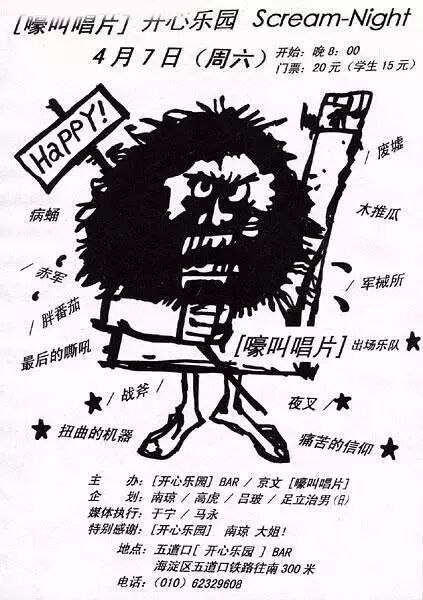 [嚎叫唱片] 开心乐园 Scream-Night
4月7日（周六）
开始：晚8：00
门票：20元（学生15元）
HaPPY!
/ 废墟
病蛹
木推瓜
/ 赤军
/ 军械所
/ 胖番茄
最后的嘶吼
[嚎叫唱片] 出场乐队 ★
★ / 战斧 /
夜叉 / ★
★ 扭曲的机器
痛苦的信仰 ★
主 办：[开心乐园] BAR / 京文 [嚎叫唱片]
企 划：南琼 / 高虎 / 吕玻 / 足立治男(日)
媒体执行：于宁 / 马永
特别感谢：[开心乐园] 南琼 大姐！
地点：五道口[ 开心乐园 ] BAR
海淀区五道口铁路往南300米
电话：(010) 62329608